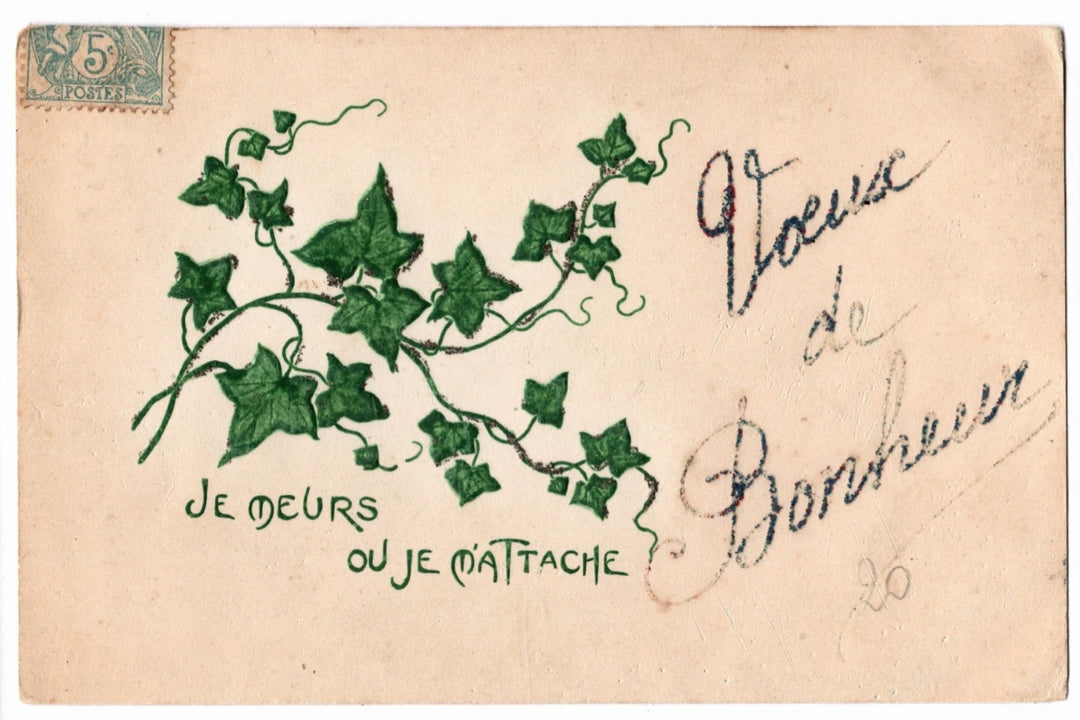 5c
POSTES
Voeux
de
Bonheur
JE MEURS
OU JE M'ATTACHE
20